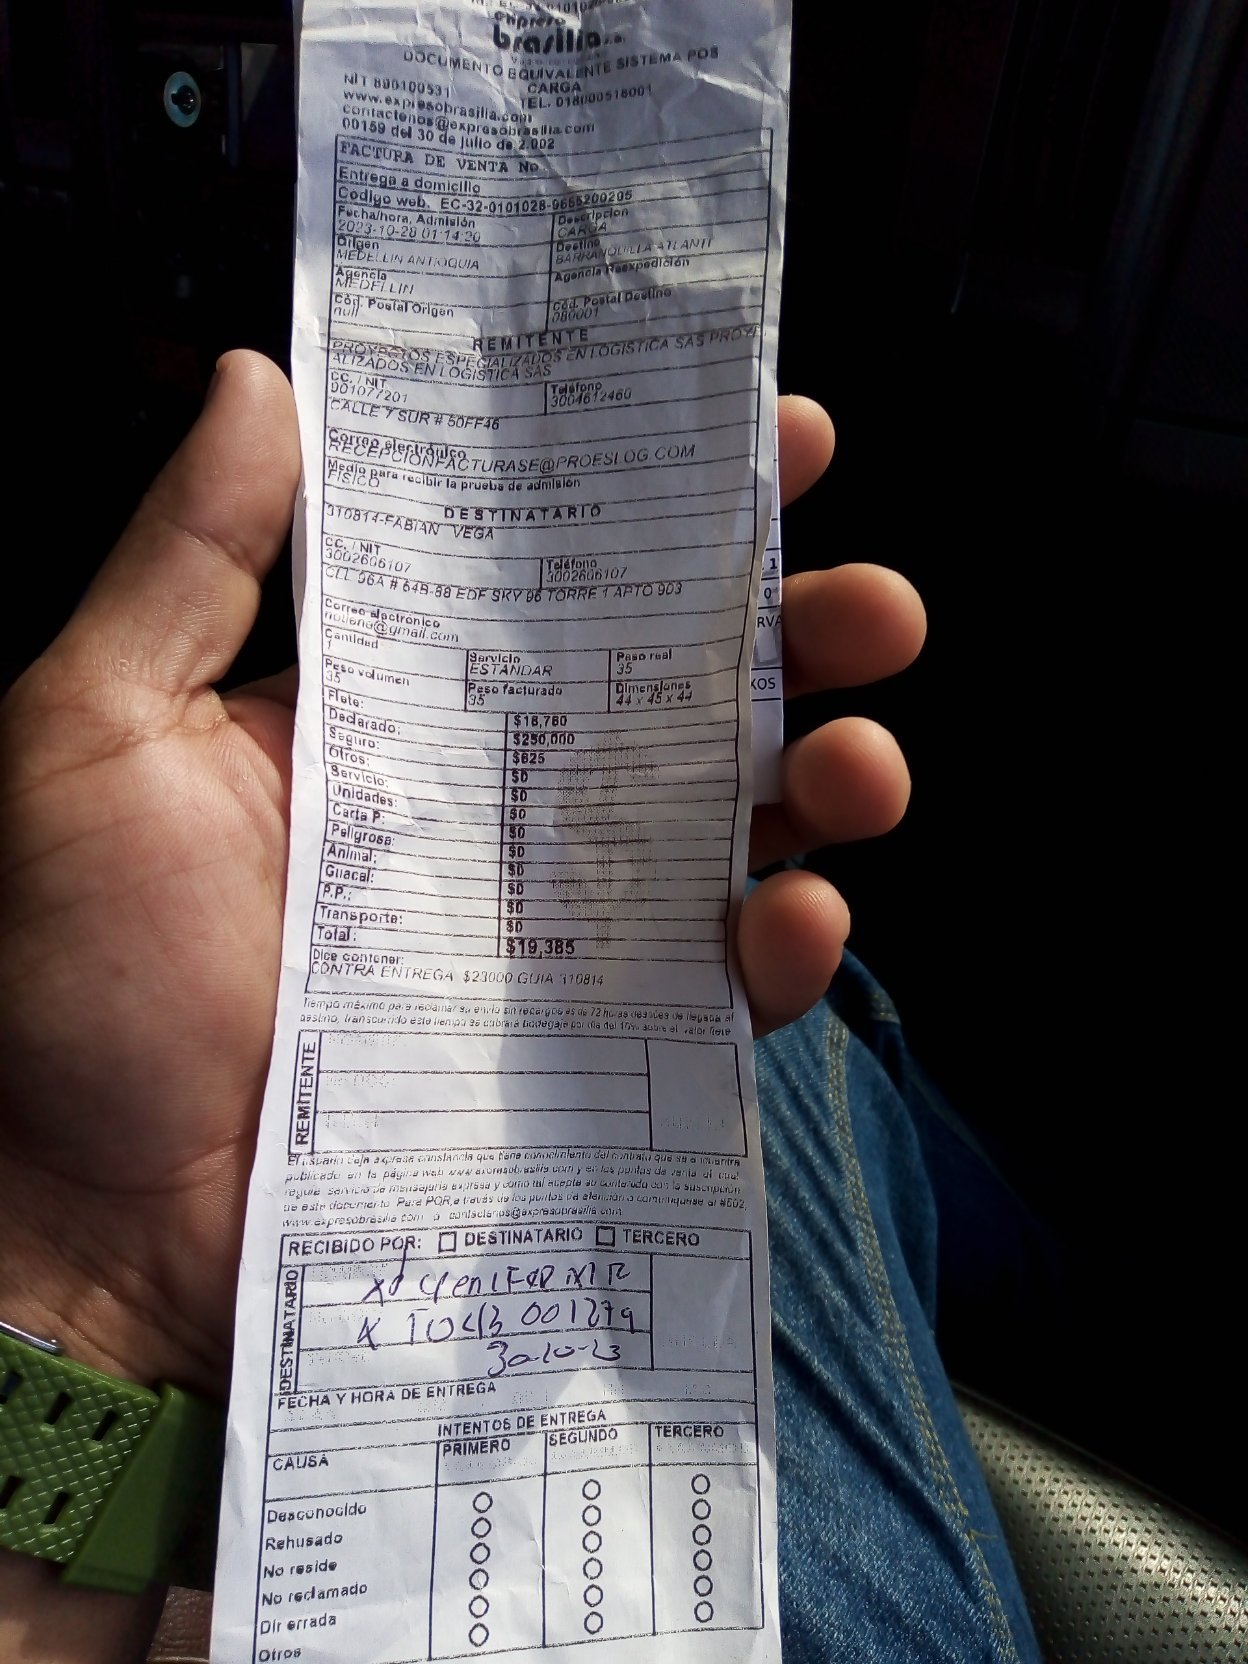 expreso
brasilia s.a.
DOCUMENTO EQUIVALENTE SISTEMA POS
CARGA
NIT 890100531
TEL. 018000518001
www.expresobrasilia.com
contactenos@expresobrasilia.com
00159 del 30 de julio de 2.002
FACTURA DE VENTA No
Entrega a domicilio
Código web. EC-32-0101028-9655200205
Fecha/hora, Admisión Descripcion
2023-10-28 01:14:20 CARGA
Origen Destino
MEDELLIN ANTIOQUIA BARRANQUILLA ATLANTI
Agencia Agencia Reexpedición
MEDELLIN
Cód. Postal Origen Cód. Postal Destino
null 080001
REMITENTE
PROYECTOS ESPECIALIZADOS EN LOGISTICA SAS PROYE
ALIZADOS EN LOGISTICA SAS
CC. / NIT Teléfono
901077201 3004612460
CALLE 7 SUR # 50FF46
Correo electrónico
RECEPCIONFACTURASE@PROESLOG.COM
Medio para recibir la prueba de admisión
FISICO
DESTINATARIO
310814-FABIAN VEGA
CC. / NIT Teléfono
3002606107 3002606107
CLL 96A # 64B-88 EDF SKY 96 TORRE 1 APTO 903
Correo electrónico
notiene@gmail.com
Cantidad Servicio Peso real
1 ESTANDAR 35
Peso volumen Peso facturado Dimensiones
35 35 44 x 45 x 44
Flete: $18,760
Declarado: $250,000
Seguro: $625
Otros: $0
Servicio: $0
Unidades: $0
Carta P: $0
Peligrosa: $0
Animal: $0
Guacal: $0
P.P.: $0
Transporte: $0
Total: $19,385
Dice contener:
CONTRA ENTREGA $23000 GUIA 310814
Tiempo máximo para reclamar su envío sin recargos es de 72 horas después de llegada al
destino, transcurrido este tiempo se cobrará bodegaje por día del 10% sobre el valor flete
REMITENTE
El usuario deja expresa constancia que tiene conocimiento del contrato que se encuentra
publicado en la página web www.expresobrasilia.com y en los puntos de venta el cual
regula servicio de mensajería expresa y como tal acepta su contenido con la suscripción
de este documento. Para PQR, a través de los puntos de atención o comuníquese al #502,
www.expresobrasilia.com o contactenos@expresobrasilia.com
RECIBIDO POR: DESTINATARIO TERCERO
DESTINATARIO
001279
30-10-23
FECHA Y HORA DE ENTREGA
INTENTOS DE ENTREGA
CAUSA PRIMERO SEGUNDO TERCERO
Desconocido
Rehusado
No reside
No reclamado
Dir errada
Otros
1
0
RVA
KOS